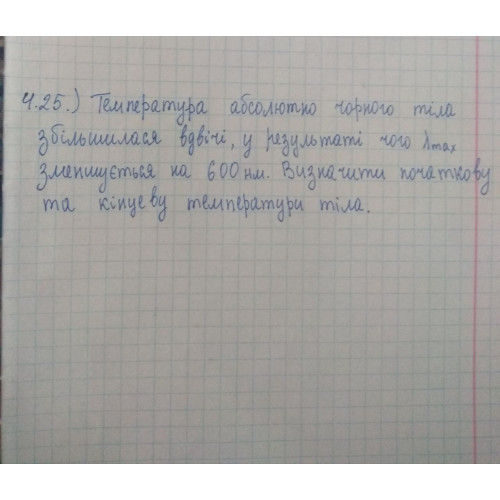 4.25.) Температура абсолютно чорного тіла
збільшилася вдвічі, у результаті чого λmax
зменшується на 600 нм. Визначити початкову
та кінцеву температури тіла.